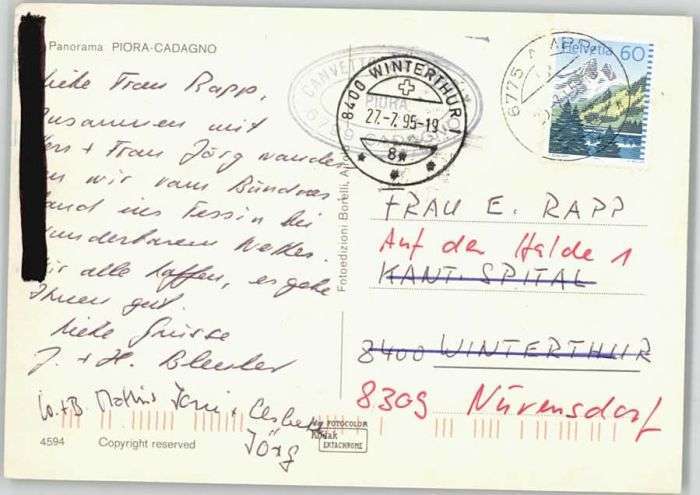 Panorama PIORA-CADAGNO
Liebe Frau Rapp,
Zusammen mit
Herrn + Frau Jörg wander
n wir vom Bündner
land ins Tessin bei
wunderbarem Wetter.
Wir alle hoffen, es gehe
Ihnen gut.
Liebe Grüsse
J. + H. Bleuler
Mathis
Jörg
4594 Copyright reserved
Fotoedizioni Borelli,
CANVETTO
PIORA
CADAGNO
8400 WINTERTHUR 1
27.-7.95-19
8
6775 AMBRI
Helvetia 60
FRAU E. RAPP
Auf der Halde 1
KANT. SPITAL
8400 WINTERTHUR
8309 Nürensdorf
FOTOCOLOR
Kodak
EKTACHROME